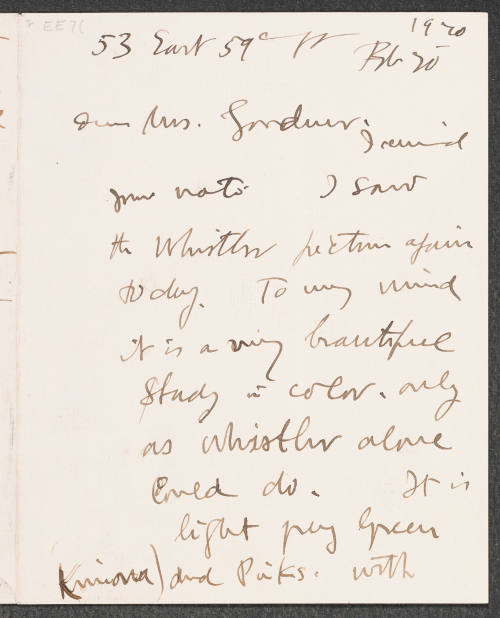 EE71
1920
53 East 59th St
Feb 20
Dear Mrs. Gardner.
I received
your note. I saw
the Whistler picture again
today. To my mind
it is a very beautiful
study in color. only
as Whistler alone
could do. It is
light green
(Kimona) and Pinks. with